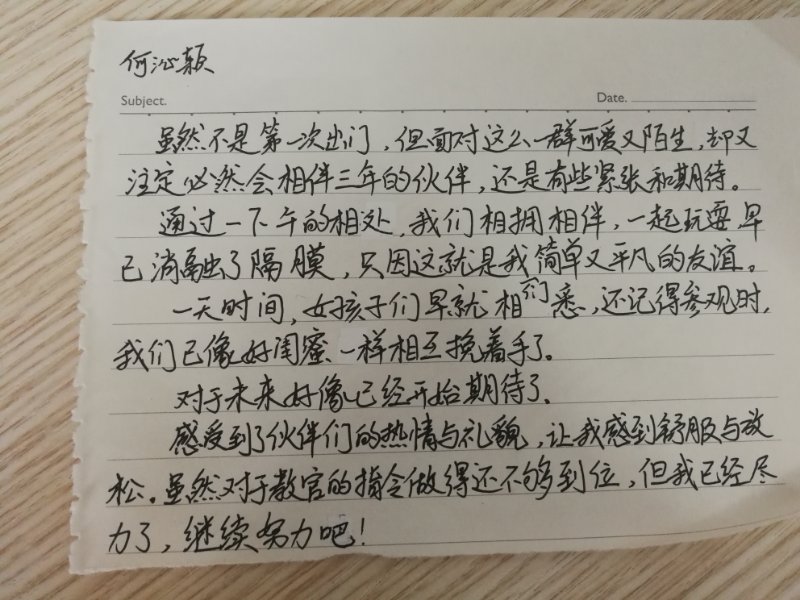 何沁颖
Subject.
Date.
虽然不是第一次出门，但面对这么一群可爱又陌生，却又
注定必然会相伴三年的伙伴，还是有些紧张和期待。
通过一下午的相处，我们相拥相伴，一起玩耍，早
已消融了隔膜，只因这就是我们简单又平凡的友谊。
一天时间，女孩子们早就相悉，还记得参观时，
我们已像好闺蜜一样相互挽着手了。
对于未来好像已经开始期待了。
感受到了伙伴们的热情与礼貌，让我感到舒服与放
松。虽然对于教官的指令做得还不够到位，但我已经尽
力了，继续努力吧！